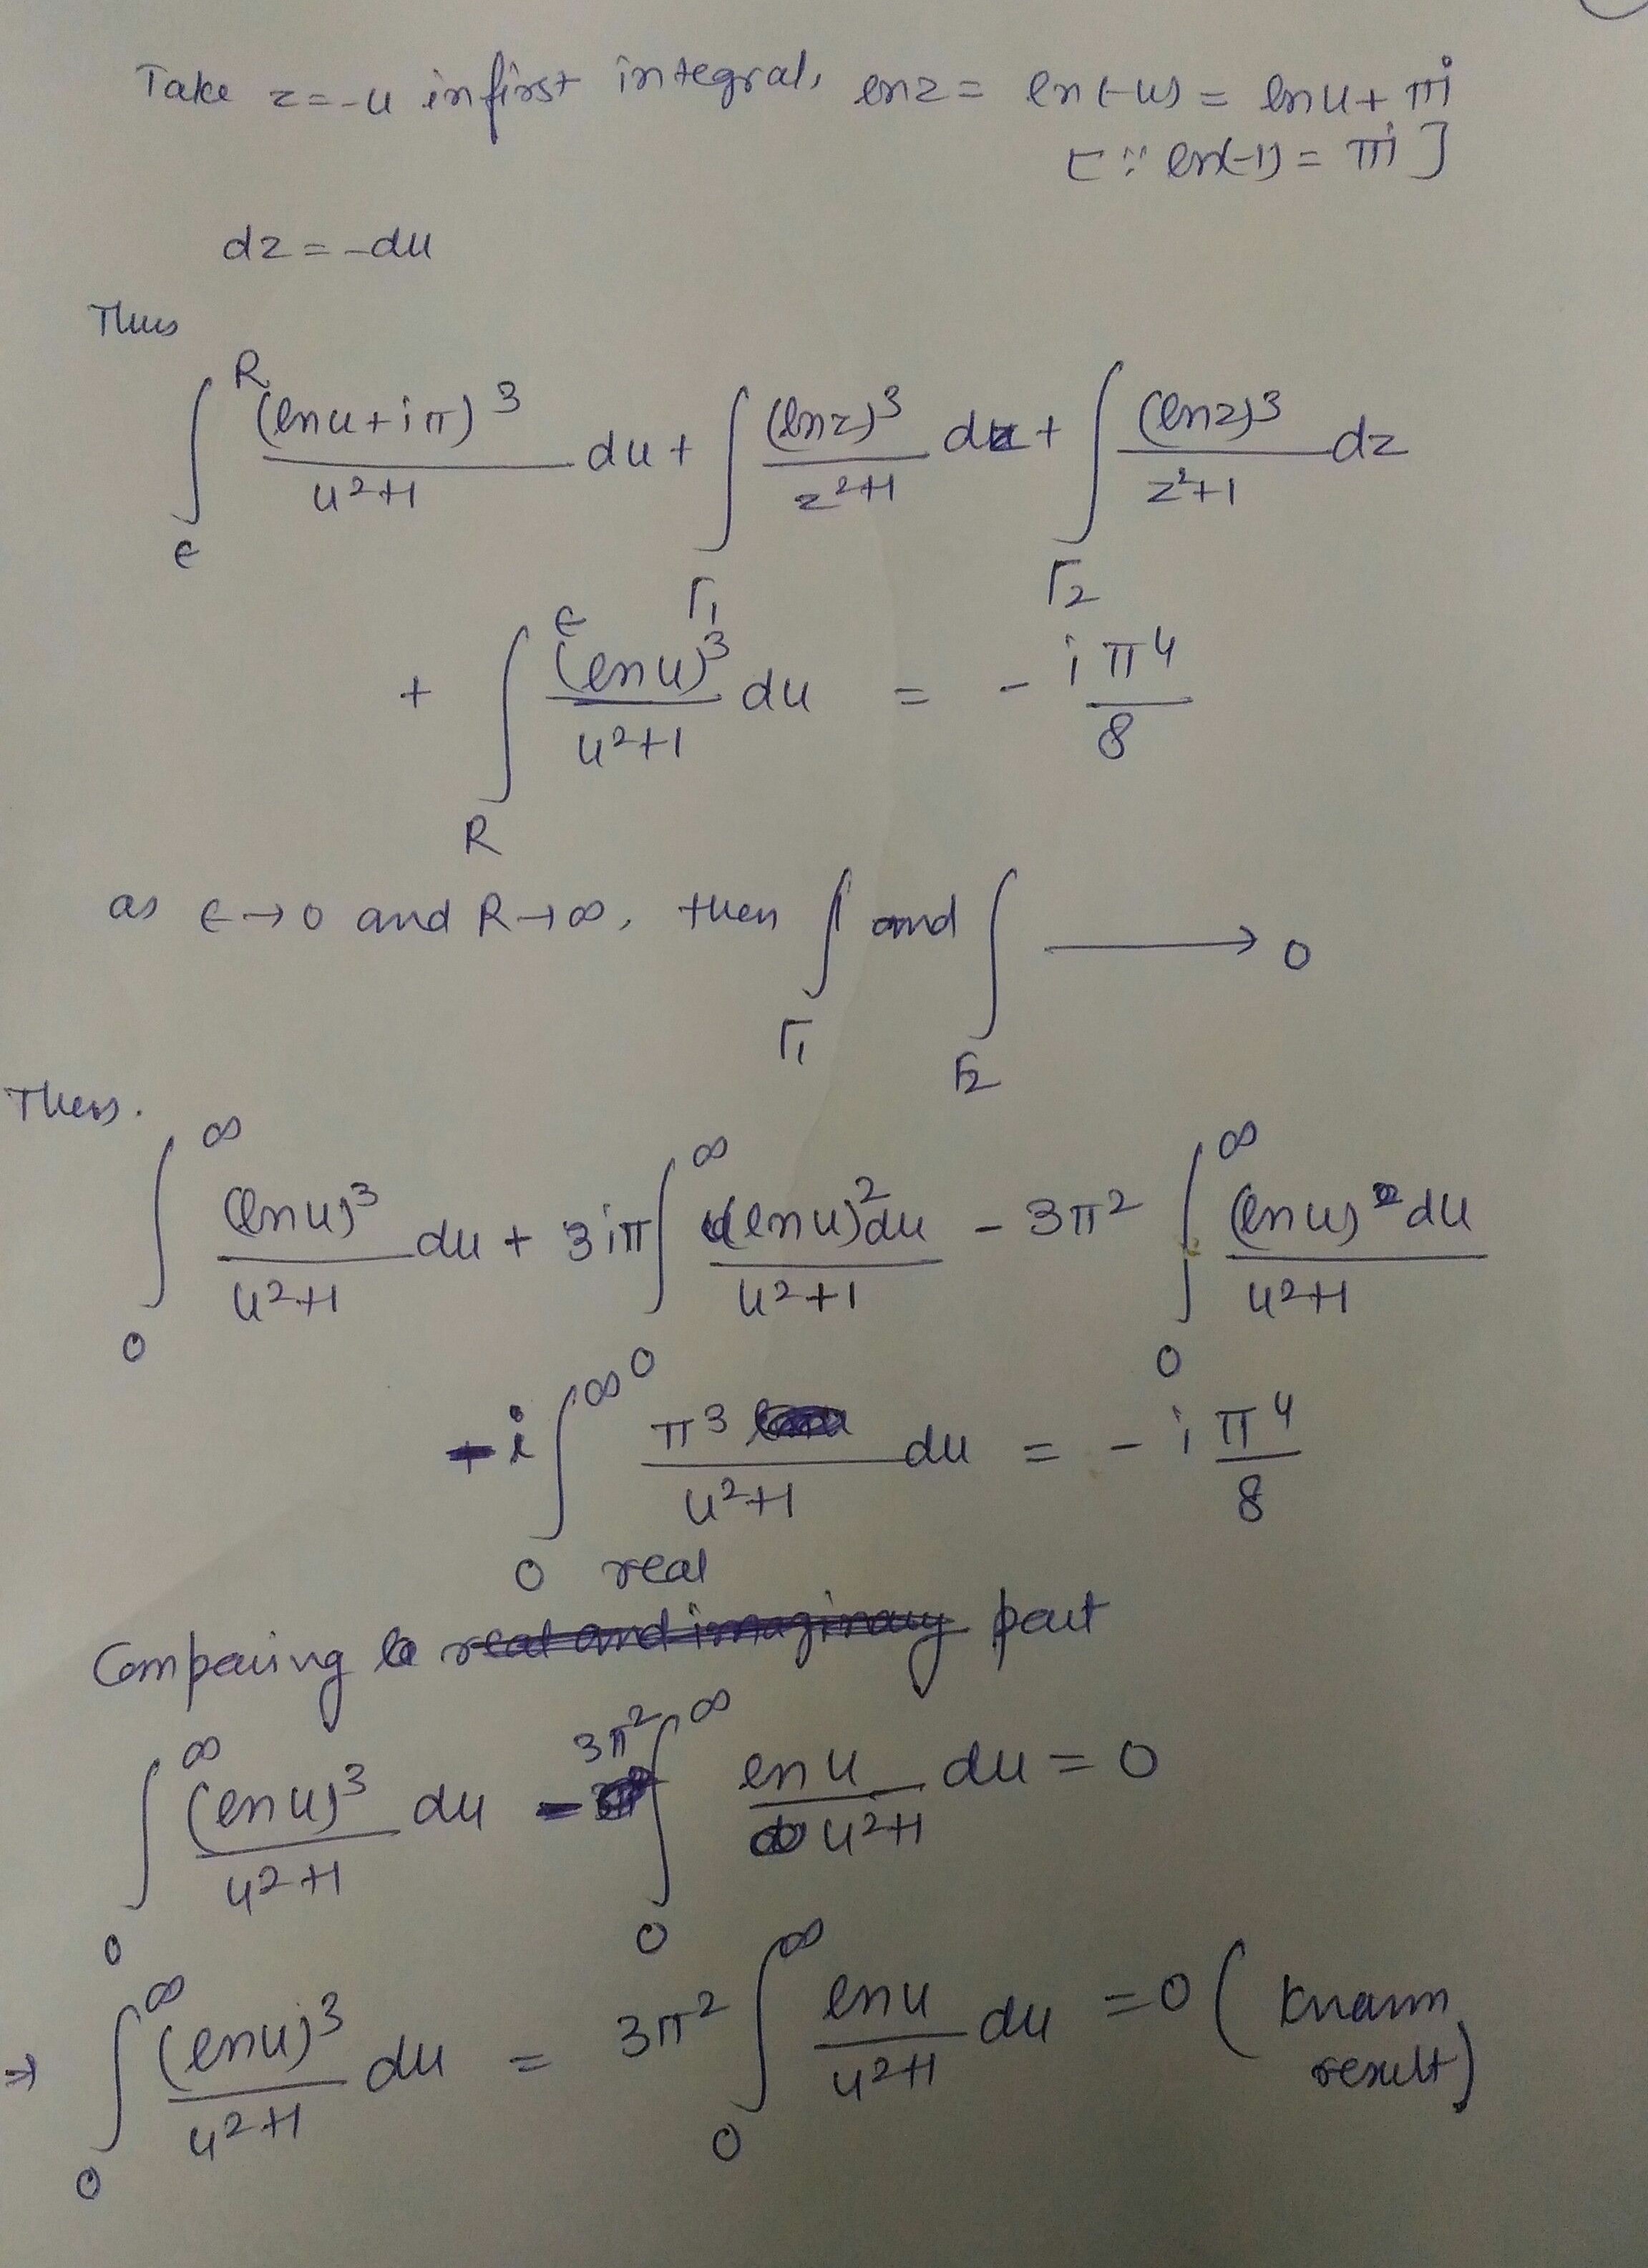 Take z=-u in first integral, lnz = ln(-u) = lnu + πi
[∵ ln(-1) = πi]
dz = -du
Thus
∫_ε^R (lnu+iπ)^3/(u^2+1) du + ∫_Γ1 (lnz)^3/(z^2+1) dz + ∫_Γ2 (lnz)^3/(z^2+1) dz
+ ∫_R^ε (lnu)^3/(u^2+1) du = - iπ^4/8
as ε→0 and R→∞, then ∫_Γ1 and ∫_Γ2 ⟶ 0
Thus.
∫_0^∞ (lnu)^3/(u^2+1) du + 3iπ ∫_0^∞ (lnu)^2 du/(u^2+1) - 3π^2 ∫_0^∞ (lnu)^2 du/(u^2+1)
- i ∫_0^∞ π^3/(u^2+1) du = - i π^4/8
Comparing real part
∫_0^∞ (lnu)^3/(u^2+1) du - 3π^2 ∫_0^∞ lnu/(u^2+1) du = 0
⇒ ∫_0^∞ (lnu)^3/(u^2+1) du = 3π^2 ∫_0^∞ lnu/(u^2+1) du = 0 (known result)